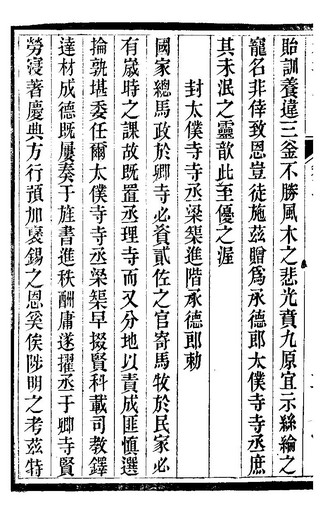 貽訓養違三釜不勝風木之悲光賁九原宜示絲綸之
寵名非倖致恩豈徒施茲贈爲承德郎太僕寺寺丞庶
其未泯之靈歆此至優之渥
封太僕寺寺丞梁榘進階承德郎勅
國家總馬政於卿寺必資貳佐之官寄馬牧於民家必
有歲時之課故既置丞理寺而又分地以責成匪慎選
掄孰堪委任爾太僕寺寺丞梁榘早掇賢科載司教鐸
達材成德既屢奏于旌書進秩酬庸遂擢丞于卿寺賢
勞寖著慶典方行預加褒錫之恩奚俟陟明之考茲特